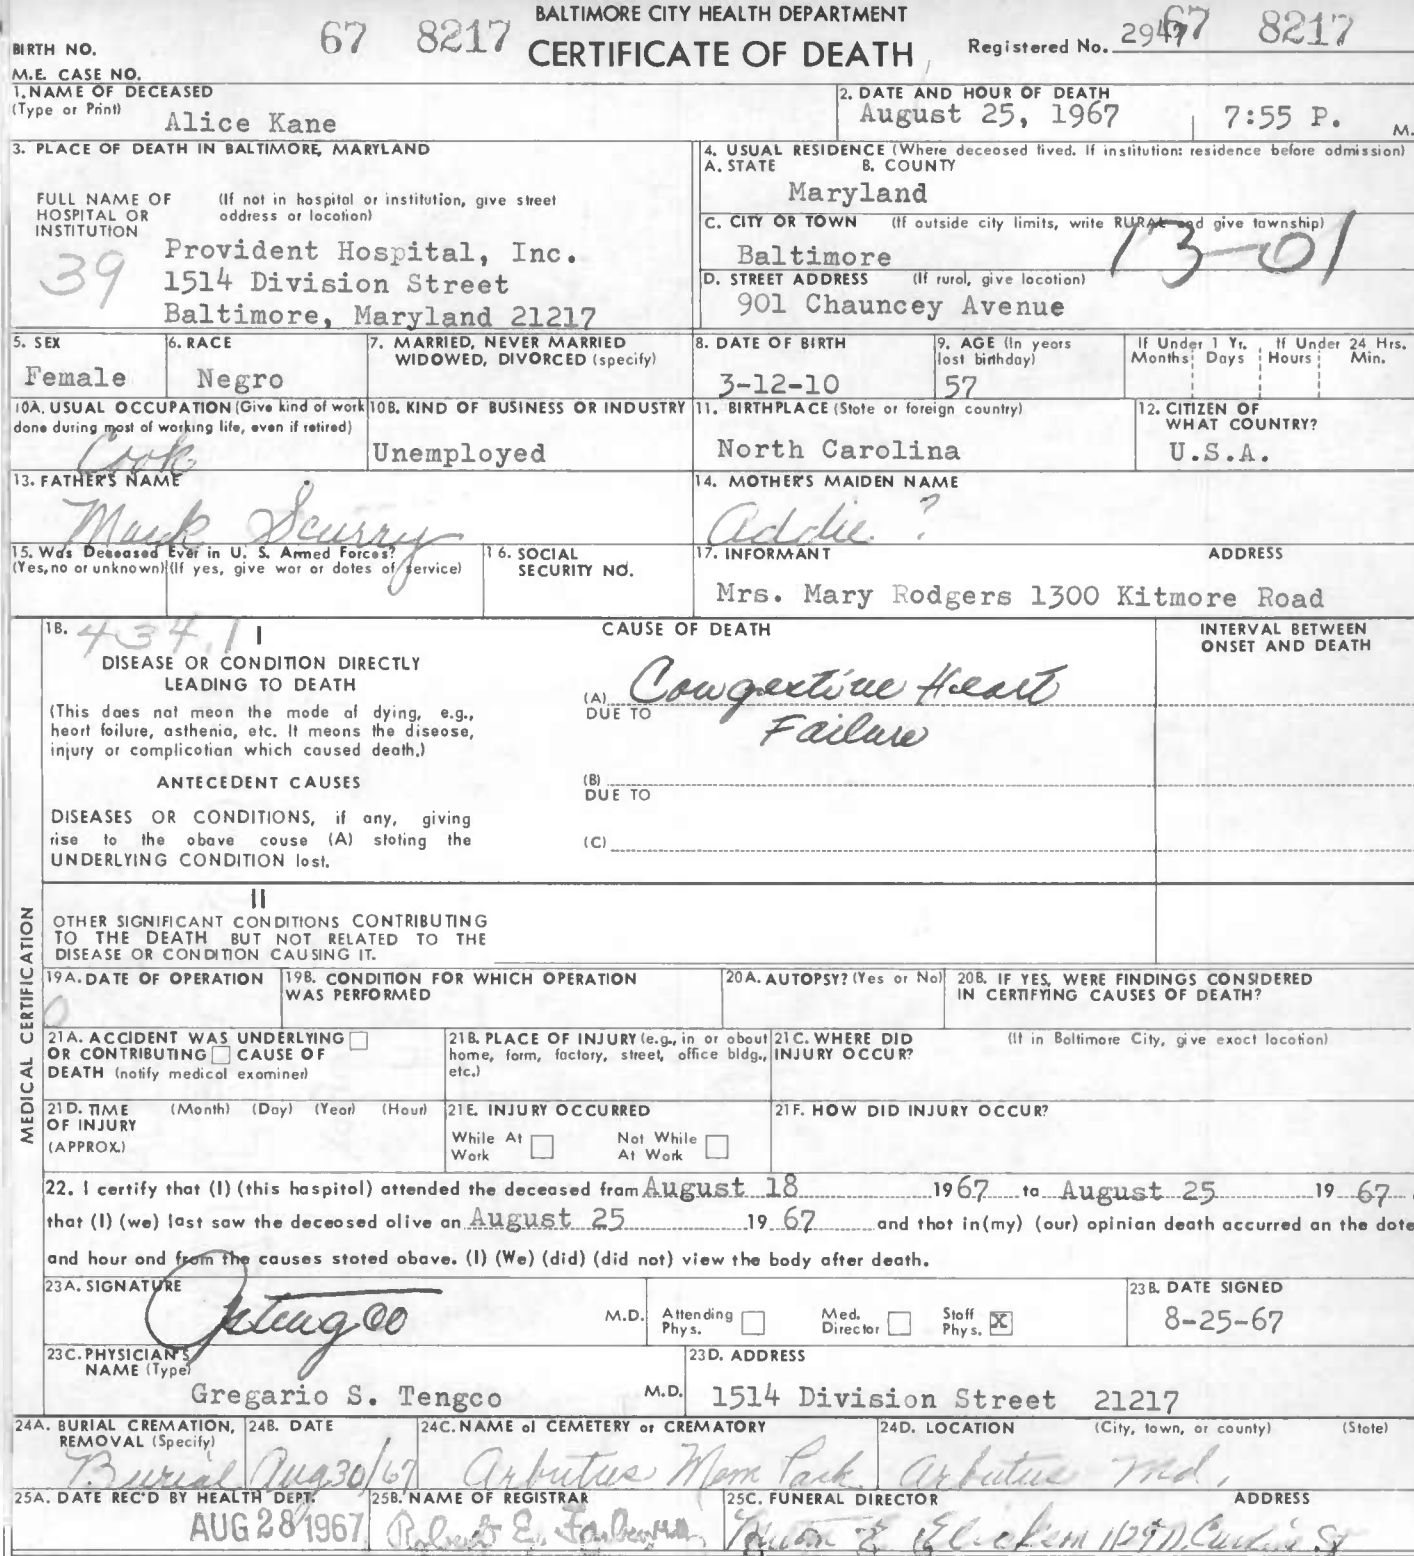 BALTIMORE CITY HEALTH DEPARTMENT
67 8217
CERTIFICATE OF DEATH
Registered No. 2947
67 8217
BIRTH NO.
M.E. CASE NO.
1. NAME OF DECEASED
(Type or Print)
Alice Kane
2. DATE AND HOUR OF DEATH
August 25, 1967 7:55 P. M.
3. PLACE OF DEATH IN BALTIMORE, MARYLAND
FULL NAME OF HOSPITAL OR INSTITUTION
(If not in hospital or institution, give street address or location)
39
Provident Hospital, Inc.
1514 Division Street
Baltimore, Maryland 21217
4. USUAL RESIDENCE (Where deceased lived. If institution: residence before admission)
A. STATE B. COUNTY
Maryland
C. CITY OR TOWN (If outside city limits, write RURAL and give township)
Baltimore
13-01
D. STREET ADDRESS (If rural, give location)
901 Chauncey Avenue
5. SEX
Female
6. RACE
Negro
7. MARRIED, NEVER MARRIED
WIDOWED, DIVORCED (specify)
8. DATE OF BIRTH
3-12-10
9. AGE (In years
last birthday)
57
If Under 1 Yr.
Months Days
If Under 24 Hrs.
Hours Min.
10A. USUAL OCCUPATION (Give kind of work
done during most of working life, even if retired)
Cook
10B. KIND OF BUSINESS OR INDUSTRY
Unemployed
11. BIRTHPLACE (State or foreign country)
North Carolina
12. CITIZEN OF
WHAT COUNTRY?
U.S.A.
13. FATHER'S NAME
Mack Scurry
14. MOTHER'S MAIDEN NAME
Addie ?
15. Was Deceased Ever in U. S. Armed Forces?
(Yes, no or unknown) (If yes, give war or dates of service)
16. SOCIAL
SECURITY NO.
17. INFORMANT ADDRESS
Mrs. Mary Rodgers 1300 Kitmore Road
MEDICAL CERTIFICATION
18. 434.1
I
DISEASE OR CONDITION DIRECTLY
LEADING TO DEATH
(This does not mean the mode of dying, e.g.,
heart failure, asthenia, etc. It means the disease,
injury or complication which caused death.)
ANTECEDENT CAUSES
DISEASES OR CONDITIONS, if any, giving
rise to the above cause (A) stating the
UNDERLYING CONDITION last.
CAUSE OF DEATH
(A) Congestive Heart
DUE TO Failure
(B)
DUE TO
(C)
INTERVAL BETWEEN
ONSET AND DEATH
II
OTHER SIGNIFICANT CONDITIONS CONTRIBUTING
TO THE DEATH BUT NOT RELATED TO THE
DISEASE OR CONDITION CAUSING IT.
19A. DATE OF OPERATION
0
19B. CONDITION FOR WHICH OPERATION
WAS PERFORMED
20A. AUTOPSY? (Yes or No)
20B. IF YES, WERE FINDINGS CONSIDERED
IN CERTIFYING CAUSES OF DEATH?
21A. ACCIDENT WAS UNDERLYING
OR CONTRIBUTING CAUSE OF
DEATH (notify medical examiner)
21B. PLACE OF INJURY (e.g., in or about
home, farm, factory, street, office bldg.,
etc.)
21C. WHERE DID
INJURY OCCUR?
(If in Baltimore City, give exact location)
21D. TIME (Month) (Day) (Year) (Hour)
OF INJURY
(APPROX.)
21E. INJURY OCCURRED
While At
Work
Not While
At Work
21F. HOW DID INJURY OCCUR?
22. I certify that (I) (this hospital) attended the deceased from August 18 1967 to August 25 19 67,
that (I) (we) last saw the deceased alive on August 25 19 67 and that in (my) (our) opinion death occurred on the date
and hour and from the causes stated above. (I) (We) (did) (did not) view the body after death.
23A. SIGNATURE
M.D.
Attending
Phys.
Med.
Director
Staff
Phys. X
23B. DATE SIGNED
8-25-67
23C. PHYSICIAN'S
NAME (Type)
Gregario S. Tengco M.D.
23D. ADDRESS
1514 Division Street 21217
24A. BURIAL CREMATION,
REMOVAL (Specify)
Burial
24B. DATE
Aug 30/67
24C. NAME of CEMETERY or CREMATORY
Arbutus Mem Park
24D. LOCATION (City, town, or county) (State)
Arbutus Md.
25A. DATE REC'D BY HEALTH DEPT.
AUG 28 1967
25B. NAME OF REGISTRAR
Robert E. Farber
25C. FUNERAL DIRECTOR ADDRESS